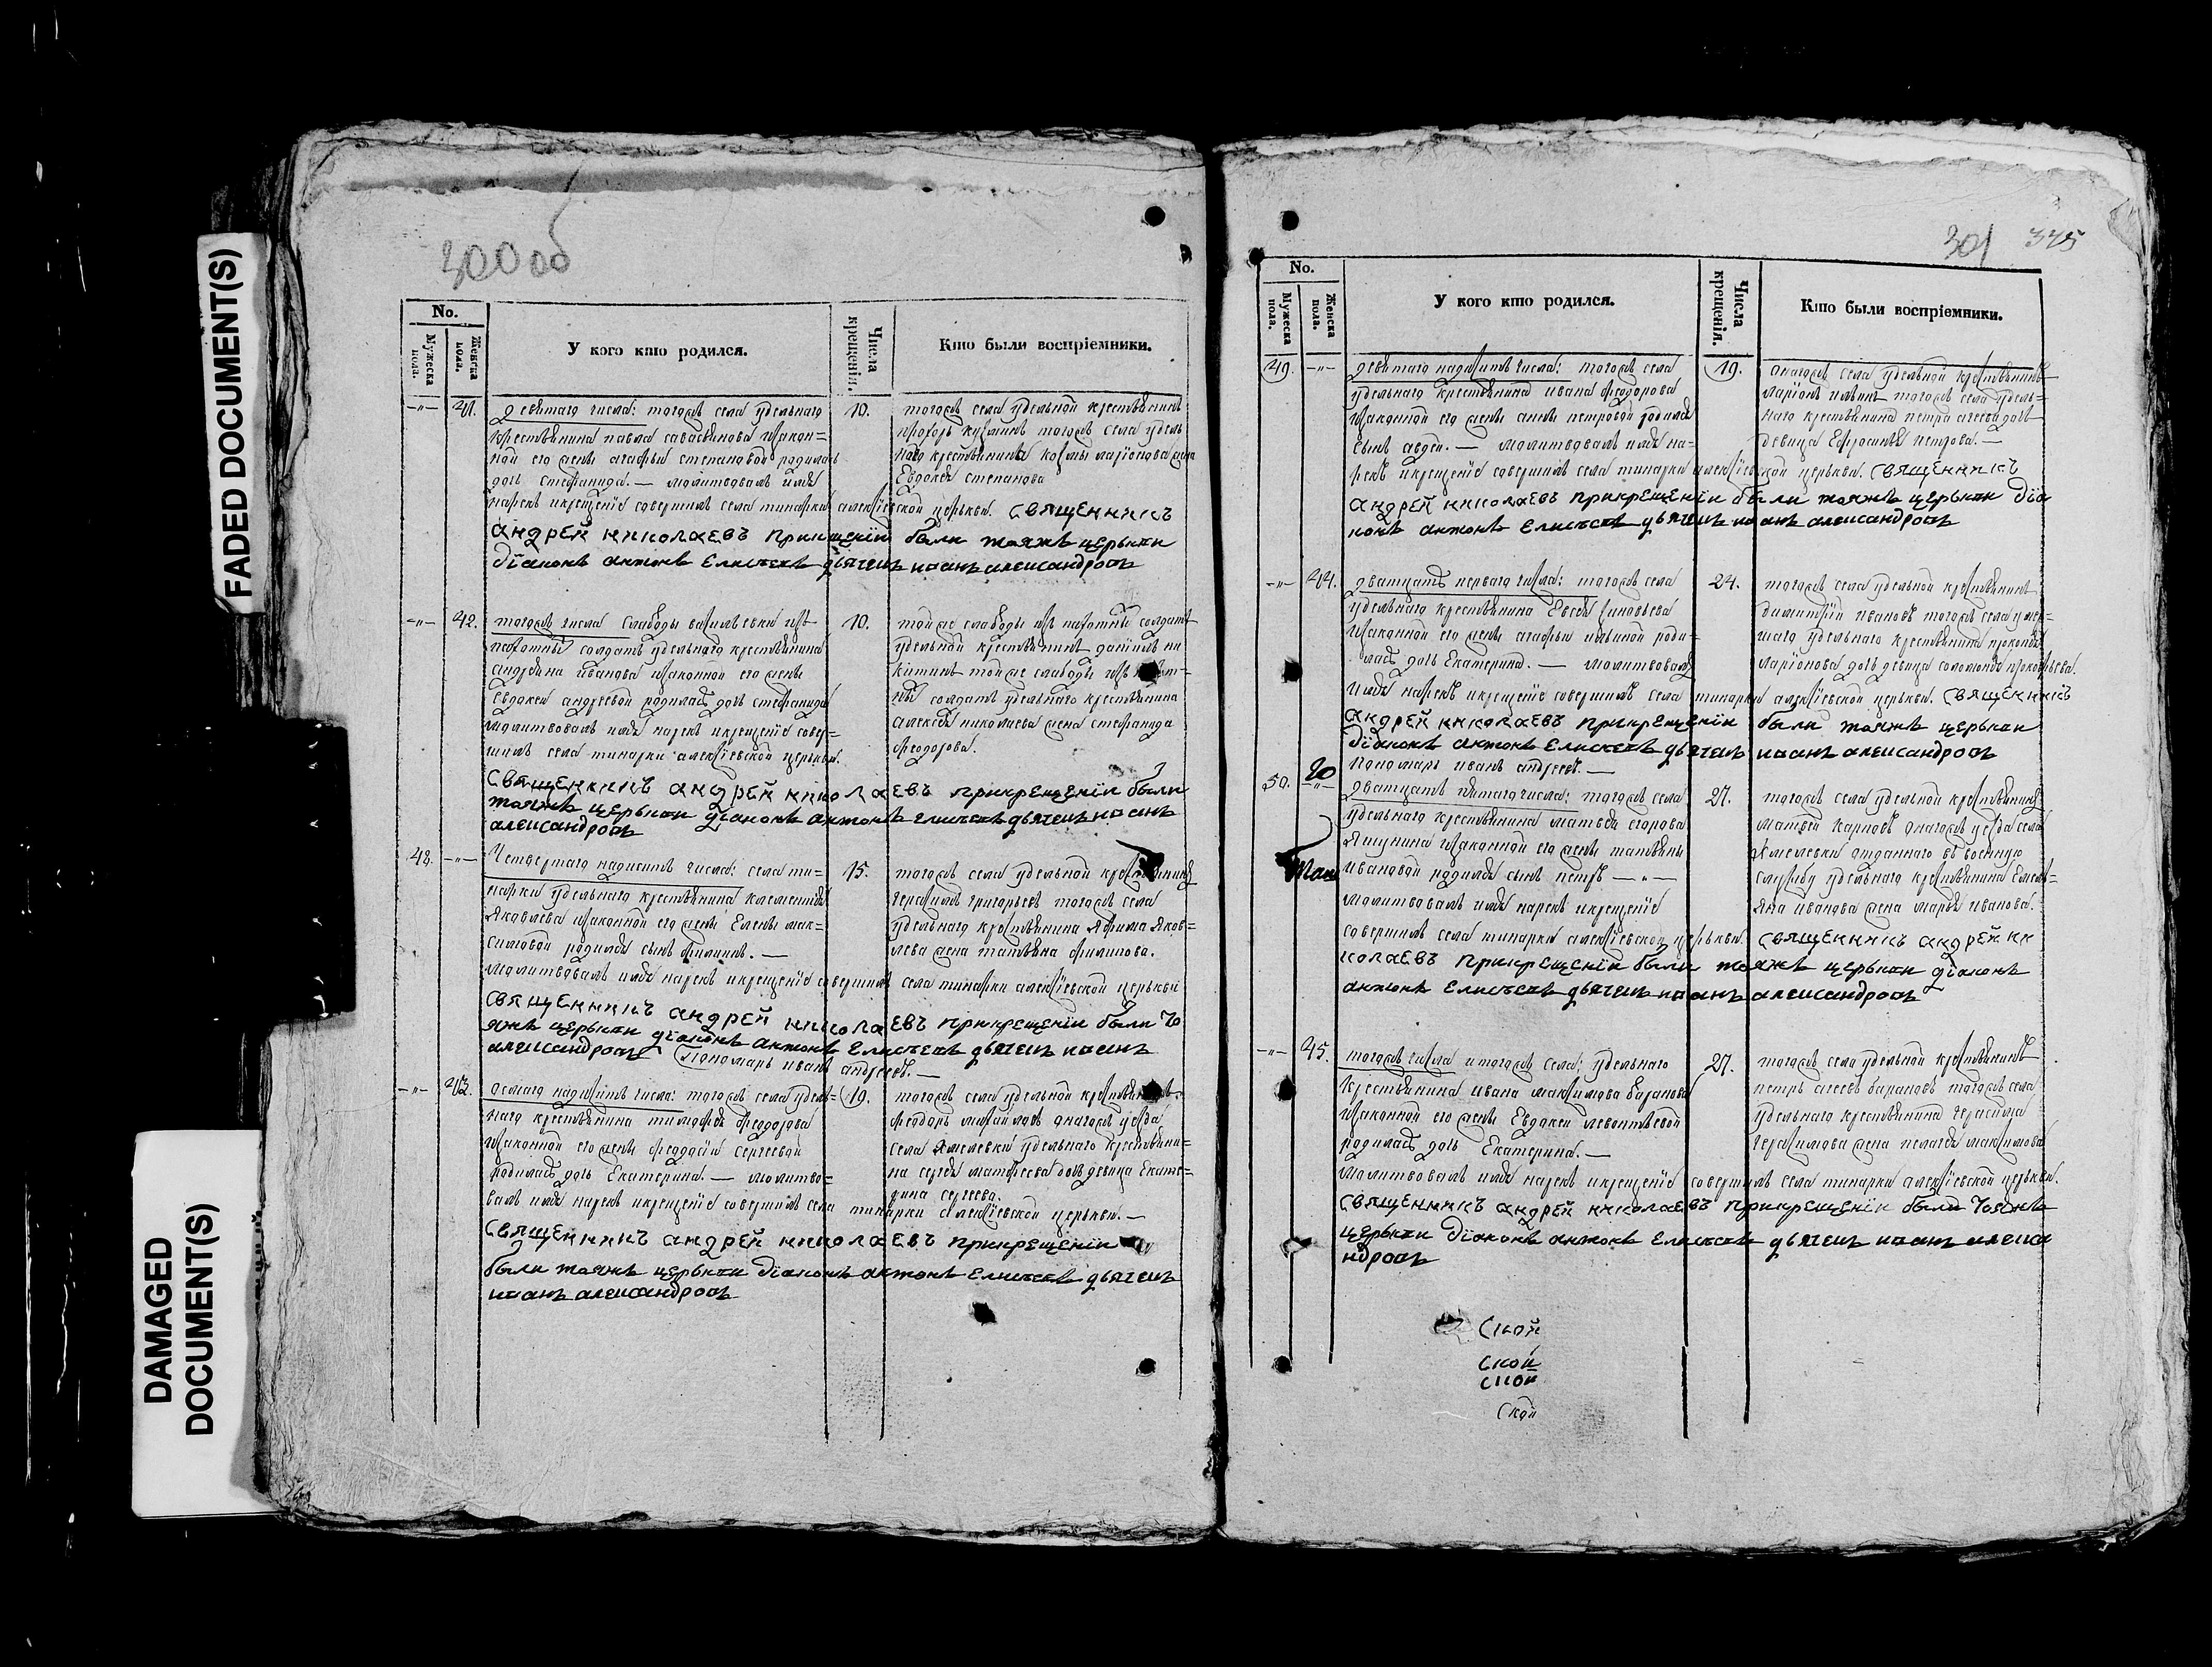 FADED DOCUMENT(S)
DAMAGED
DOCUMENT(S)
300 об
No.
Мужеска пола.
Женска пола.
У кого кто родился.
Числа крещенія.
Кто были воспріемники.
-"- 41.
девятаго числа: тогожъ села удѣльнаго
крестьянина павла савасьянова изакон=
ной его жены агафьи степановой родилась
дочь стефанида. — молитвовалъ имя
нарекъ икрещеніе совершилъ села тинарки алексіевской церькви. священникъ
андрей николаевъ прикрещеніи были тояжъ церькви
діаконъ антонъ Елисеевъ дьячекъ иванъ александровъ
10.
тогожъ села удѣльной крестьянинъ
прохоръ кузминъ тогожъ села удѣль
наго крестьянина козмы ларіонова жена
Евдокея степанова
-"- 42.
тогожъ числа слабоды васильевки изъ
пахотныхъ солдатъ удѣльнаго крестьянина
андреяна иванова изаконной его жены
Евдокеи андреевой родилась дочь стефанида
молитвовалъ имя нарекъ икрещеніе совер=
шилъ села тинарки алексіевской церькви.
священникъ андрей николаевъ прикрещеніи были
тояжъ церькви діаконъ антонъ Елисеевъ дьячекъ иванъ
александровъ
10.
тойже слабоды изъ пахотныхъ солдатъ
удѣльной крестьянинъ данилъ ни
китинъ тойже слабоды изъ
солдатъ удѣльнаго крестьянина
алексея николаева жена стефанида
феодорова.
48. -"-
Четвертаго надесить числа: села ти=
нарки удѣльнаго крестьянина климентія
Яковлева изаконной его жены Елены мак=
симовой родился сынъ филипъ. —
молитвовалъ имя нарекъ икрещеніе совершилъ села тинарки алексіевской церькви
священникъ андрей николаевъ прикрещеніи были то
яжъ церькви діаконъ антонъ Елисеевъ дьячекъ иванъ
александровъ пономарь иванъ андреевъ. —
15.
тогожъ села удѣльной крестьянинъ
герасимъ григорьевъ тогожъ села
удѣльнаго крестьянина Яфима Яков=
лева жена татьяна филипова.
-"- 43.
осмаго надесить числа: тогожъ села удѣль=
наго крестьянина тимофея феодорова
изаконной его жены феодосіи сергеевой
родилась дочь Екатерина. — молитво=
валъ имя нарекъ икрещеніе совершилъ села тинарки алексіевской церькви. —
священникъ андрей николаевъ прикрещеніи
были тояжъ церькви діаконъ антонъ Елисеевъ дьячекъ
иванъ александровъ
19.
тогожъ села удѣльной крестьянинъ
феодоръ михайловъ оногожъ уезда
села хмелевки удѣльнаго крестьяни=
на сергея матфеева дочь девица Екате=
рина сергеева.
301 375
No.
Мужеска пола.
Женска пола.
У кого кто родился.
Числа крещенія.
Кто были воспріемники.
49. -"-
девятаго надесить числа: тогожъ села
удѣльнаго крестьянина ивана феодорова
изаконной его жены анны петровой родился
сынъ авдей. — молитвовалъ имя на=
рекъ икрещеніе совершилъ села тинарки алексіевской церькви. священникъ
андрей николаевъ прикрещеніи были тояжъ церькви діа
конъ антонъ Елисеевъ дьячекъ иванъ александровъ
19.
оногожъ села удѣльной крестьянинъ
ларіонъ ильинъ тогожъ села удѣль=
наго крестьянина петра агеева дочь
девица Ефросинья петрова. —
-"- 44.
дватцать перваго числа: тогожъ села
удѣльнаго крестьянина Евсея зиновьева
изаконной его жены агафьи ильиной роди=
лась дочь Екатерина. — молитвовалъ
имя нарекъ икрещеніе совершилъ села тинарки алексіевской церькви. священникъ
андрей николаевъ прикрещеніи были тояжъ церькви
діаконъ антонъ Елисеевъ дьячекъ иванъ александровъ
пономарь иванъ андреевъ. —
24.
тогожъ села удѣльной крестьянинъ
димитрій ивановъ тогожъ села умер=
шаго удѣльнаго крестьянина прокопія
ларіонова дочь девица соломонія прокофьева.
50. -"-
дватцать пятаго числа: тогожъ села
удѣльнаго крестьянина матвея егорова
Япунина изаконной его жены татьяны
ивановой родился сынъ петръ —"—
молитвовалъ имя нарекъ икрещеніе
совершилъ села тинарки алексіевской церькви. священникъ андрей ни
колаевъ прикрещеніи были тояжъ церькви діаконъ
антонъ Елисеевъ дьячекъ иванъ александровъ
27.
тогожъ села удѣльной крестьянинъ
матвей карповъ оногожъ уезда села
хмелевки отданнаго въ военную
службу удѣльнаго крестьянина Емель=
яна иванова жена марья иванова.
-"- 45.
тогожъ числа итогожъ села: удѣльнаго
крестьянина ивана максимова баранова
изаконной его жены Евдокеи левонтьевой
родилась дочь Екатерина. —
молитвовалъ имя нарекъ икрещеніе совершилъ села тинарки алексіевской церькви.
священникъ андрей николаевъ прикрещеніи были тояжъ
церькви діаконъ антонъ Елисеевъ дьячекъ иванъ алекса
ндровъ
27.
тогожъ села удѣльной крестьянинъ
петръ агеевъ барановъ тогожъ села
удѣльнаго крестьянина герасима
герасимова жена пелагея максимова
ской
ской
ской
ской